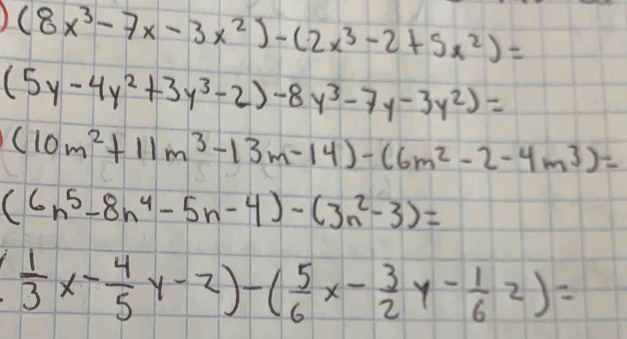 ) (8x³ - 7x - 3x²) - (2x³ - 2 + 5x²) =
(5y - 4y² + 3y³ - 2) - 8y³ - 7y - 3y²) =
) (10m² + 11m³ - 13m - 14) - (6m² - 2 - 4m³) =
(6n⁵ - 8n⁴ - 5n - 4) - (3n² - 3) =
( 1/3 x - 4/5 y - z) - ( 5/6 x - 3/2 y - 1/6 z ) =